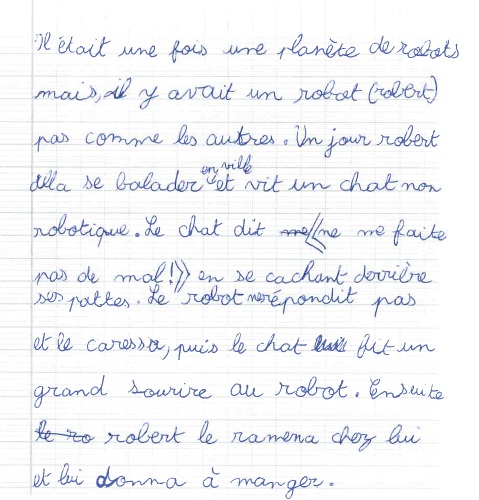 Il était une fois une planète de robots
mais, il y avait un robot (robert)
pas comme les autres. Un jour robert
alla se balader en ville et vit un chat non
robotique. Le chat dit me «ne me faite
pas de mal!» en se cachant derrière
ses pattes. Le robot ne répondit pas
et le caressa, puis le chat lui fit un
grand sourire au robot. Ensuite
le ro robert le ramena chez lui
et lui donna à manger.